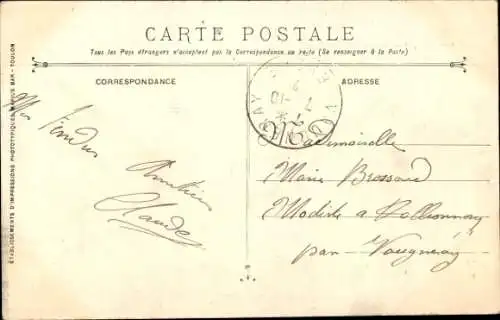 CARTE POSTALE
Tous les Pays étrangers n'acceptent pas la Correspondance au recto (Se renseigner à la Poste)
CORRESPONDANCE
ADRESSE
Mes
Amitiés
Claude
Mademoiselle
Marie Brossard
Modiste a Pollionnay
par Vaugneray
ÉTABLISSEMENTS D'IMPRESSIONS PHOTOTYPIQUES MARIUS BAR - TOULON